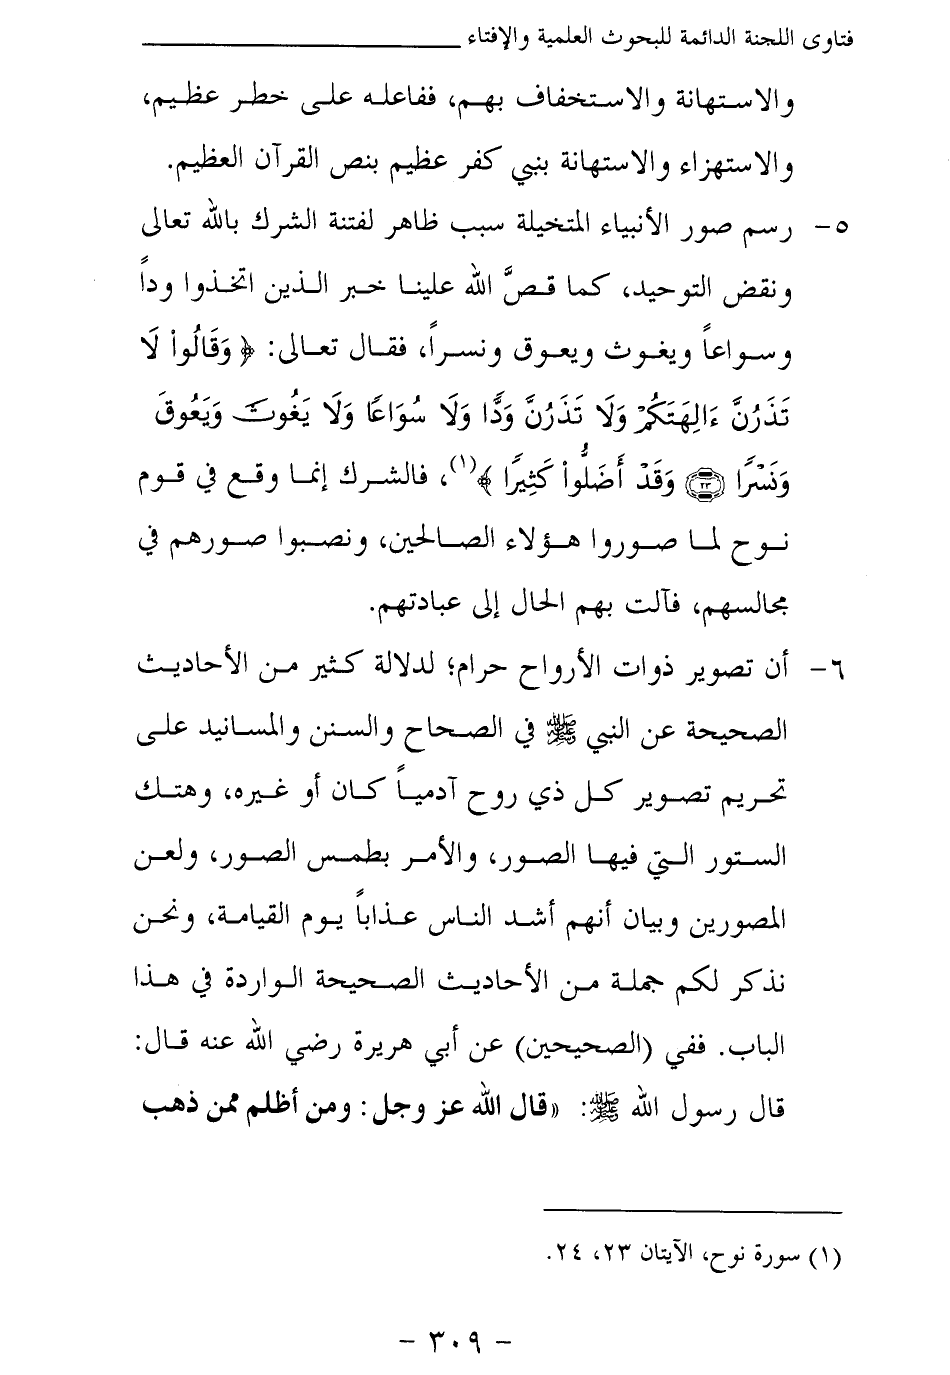 فتاوى اللجنة الدائمة للبحوث العلمية والإفتاء
والاستهانة والاستخفاف بهم، ففاعله على خطر عظيم،
والاستهزاء والاستهانة بنبي كفر عظيم بنص القرآن العظيم.
٥- رسم صور الأنبياء المتخيلة سبب ظاهر لفتنة الشرك بالله تعالى
ونقض التوحيد، كما قصَّ الله علينا خبر الذين اتخذوا وداً
وسواعاً ويغوث ويعوق ونسراً، فقال تعالى: ﴿ وَقَالُوا۟ لَا
تَذَرُنَّ ءَالِهَتَكُمْ وَلَا تَذَرُنَّ وَدًّا وَلَا سُوَاعًا وَلَا يَغُوثَ وَيَعُوقَ
وَنَسْرًا ٢٣ وَقَدْ أَضَلُّوا۟ كَثِيرًا ﴾(١)، فالشرك إنما وقع في قوم
نوح لما صوروا هؤلاء الصالحين، ونصبوا صورهم في
مجالسهم، فآلت بهم الحال إلى عبادتهم.
٦- أن تصوير ذوات الأرواح حرام؛ لدلالة كثير من الأحاديث
الصحيحة عن النبي ﷺ في الصحاح والسنن والمسانيد على
تحريم تصوير كل ذي روح آدمياً كان أو غيره، وهتك
الستور التي فيها الصور، والأمر بطمس الصور، ولعن
المصورين وبيان أنهم أشد الناس عذاباً يوم القيامة، ونحن
نذكر لكم جملة من الأحاديث الصحيحة الواردة في هذا
الباب. ففي (الصحيحين) عن أبي هريرة رضي الله عنه قال:
قال رسول الله ﷺ: «قال الله عز وجل: ومن أظلم ممن ذهب
(١) سورة نوح، الآيتان ٢٣، ٢٤.
- ٣٠٩ -